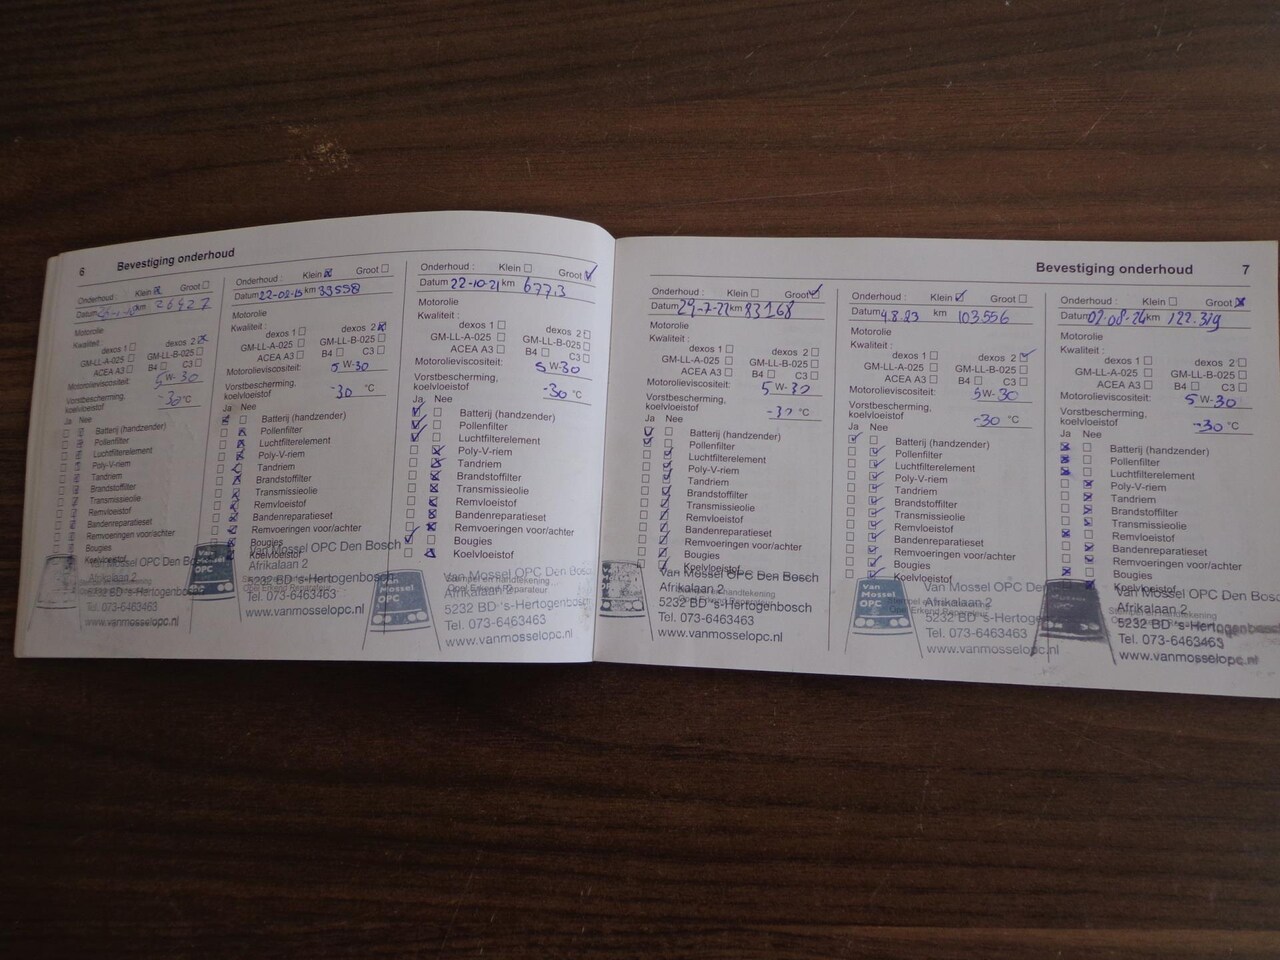 6 Bevestiging onderhoud
Onderhoud : Klein Groot
Datum km 26927
Motorolie
Kwaliteit :
dexos 1 dexos 2
GM-LL-A-025 GM-LL-B-025
ACEA A3 B4 C3
Motorolieviscositeit: 5W-30
Vorstbescherming,
koelvloeistof -30 °C
Ja Nee
Batterij (handzender)
Pollenfilter
Luchtfilterelement
Poly-V-riem
Tandriem
Brandstoffilter
Transmissieolie
Remvloeistof
Bandenreparatieset
Remvoeringen voor/achter
Bougies
Koelvloeistof
Van Mossel OPC Den Bosch
Afrikalaan 2
5232 BD 's-Hertogenbosch
Tel. 073-6463463
www.vanmosselopc.nl
Onderhoud : Klein Groot
Datum 22-02-19 km 39598
Motorolie
Kwaliteit :
dexos 1 dexos 2
GM-LL-A-025 GM-LL-B-025
ACEA A3 B4 C3
Motorolieviscositeit: 5W-30
Vorstbescherming,
koelvloeistof -30 °C
Ja Nee
Batterij (handzender)
Pollenfilter
Luchtfilterelement
Poly-V-riem
Tandriem
Brandstoffilter
Transmissieolie
Remvloeistof
Bandenreparatieset
Remvoeringen voor/achter
Bougies
Koelvloeistof
Van Mossel OPC
Van Mossel OPC Den Bosch
Afrikalaan 2
5232 BD 's-Hertogenbosch
Tel. 073-6463463
www.vanmosselopc.nl
Onderhoud : Klein Groot
Datum 22-10-21 km 677.3
Motorolie
Kwaliteit :
dexos 1 dexos 2
GM-LL-A-025 GM-LL-B-025
ACEA A3 B4 C3
Motorolieviscositeit: 5W-30
Vorstbescherming,
koelvloeistof -30 °C
Ja Nee
Batterij (handzender)
Pollenfilter
Luchtfilterelement
Poly-V-riem
Tandriem
Brandstoffilter
Transmissieolie
Remvloeistof
Bandenreparatieset
Remvoeringen voor/achter
Bougies
Koelvloeistof
Stempel en handtekening
Opel Erkend Reparateur
Van Mossel OPC
Van Mossel OPC Den Bosc
Afrikalaan 2
5232 BD 's-Hertogenbosch
Tel. 073-6463463
www.vanmosselopc.nl
Bevestiging onderhoud 7
Onderhoud : Klein Groot
Datum 29-7-22 km 83168
Motorolie
Kwaliteit :
dexos 1 dexos 2
GM-LL-A-025 GM-LL-B-025
ACEA A3 B4 C3
Motorolieviscositeit: 5W-30
Vorstbescherming,
koelvloeistof °C
Ja Nee
Batterij (handzender)
Pollenfilter
Luchtfilterelement
Poly-V-riem
Tandriem
Brandstoffilter
Transmissieolie
Remvloeistof
Bandenreparatieset
Remvoeringen voor/achter
Bougies
Koelvloeistof
Van Mossel OPC Den Bosch
Afrikalaan 2
5232 BD 's-Hertogenbosch
Tel. 073-6463463
www.vanmosselopc.nl
Onderhoud : Klein Groot
Datum 4.8.23 km 103.556
Motorolie
Kwaliteit :
dexos 1 dexos 2
GM-LL-A-025 GM-LL-B-025
ACEA A3 B4 C3
Motorolieviscositeit: 5W-30
Vorstbescherming,
koelvloeistof -30 °C
Ja Nee
Batterij (handzender)
Pollenfilter
Luchtfilterelement
Poly-V-riem
Tandriem
Brandstoffilter
Transmissieolie
Remvloeistof
Bandenreparatieset
Remvoeringen voor/achter
Bougies
Koelvloeistof
Van Mossel OPC
Van Mossel OPC Den
Afrikalaan 2
5232 BD 's-Hertogenbosch
Tel. 073-6463463
www.vanmosselopc.nl
Onderhoud : Klein Groot
Datum 02-08-24 km 122.319
Motorolie
Kwaliteit :
dexos 1 dexos 2
GM-LL-A-025 GM-LL-B-025
ACEA A3 B4 C3
Motorolieviscositeit: 5W-30
Vorstbescherming,
koelvloeistof -30 °C
Ja Nee
Batterij (handzender)
Pollenfilter
Luchtfilterelement
Poly-V-riem
Tandriem
Brandstoffilter
Transmissieolie
Remvloeistof
Bandenreparatieset
Remvoeringen voor/achter
Bougies
Koelvloeistof
Van Mossel OPC Den Bos
Afrikalaan 2
5232 BD 's-Hertogenbosch
Tel. 073-6463463
www.vanmosselopc.nl